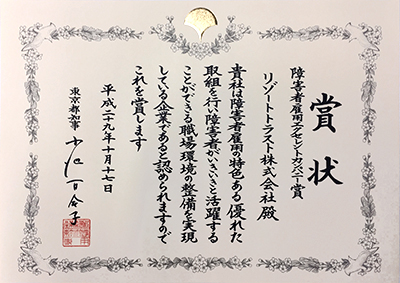 賞状
障害者雇用エクセレントカンパニー賞
リゾートトラスト株式会社 殿
貴社は障害者雇用の特色ある優れた
取組を行い障害者がいきいきと活躍する
ことができる職場環境の整備を実現
している企業であると認められますので
これを賞します
平成二十九年十月十七日
東京都知事 小池百合子